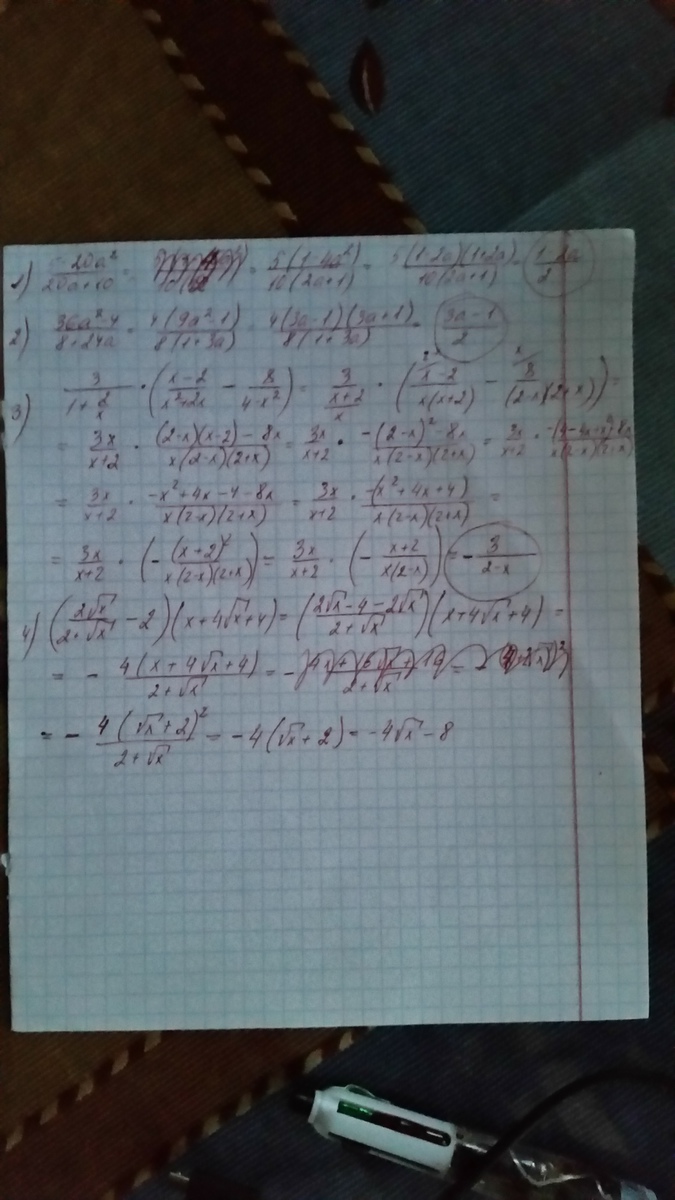 1) 5-20a²/20a+10 = = 5(1-4a²)/10(2a+1) = 5(1-2a)(1+2a)/10(2a+1) = 1-2a/2
2) 36a²-4/8+24a = 4(9a²-1)/8(1+3a) = 4(3a-1)(3a+1)/8(1+3a) = 3a-1/2
3) 3/1+2/x · (x-2/x²+2x - 8/4-x²) = 3/x+2/x · (x-2/x(x+2) - 8/(2-x)(2+x)) =
= 3x/x+2 · (2-x)(x-2)-8x/x(2-x)(2+x) = 3x/x+2 · -(2-x)²-8x/x(2-x)(2+x) = 3x/x+2 · -(4-4x+x²)-8x/x(2-x)(2+x)
= 3x/x+2 · -x²+4x-4-8x/x(2-x)(2+x) = 3x/x+2 · -(x²+4x+4)/x(2-x)(2+x) =
= 3x/x+2 · (-(x+2)²/x(2-x)(2+x)) = 3x/x+2 · (-x+2/x(2-x)) = -3/2-x
4) (2√x/2+√x - 2)(x+4√x+4) = (2√x-4-2√x/2+√x)(x+4√x+4) =
= - 4(x+4√x+4)/2+√x = -
= - 4(√x+2)²/2+√x = -4(√x+2) = -4√x-8